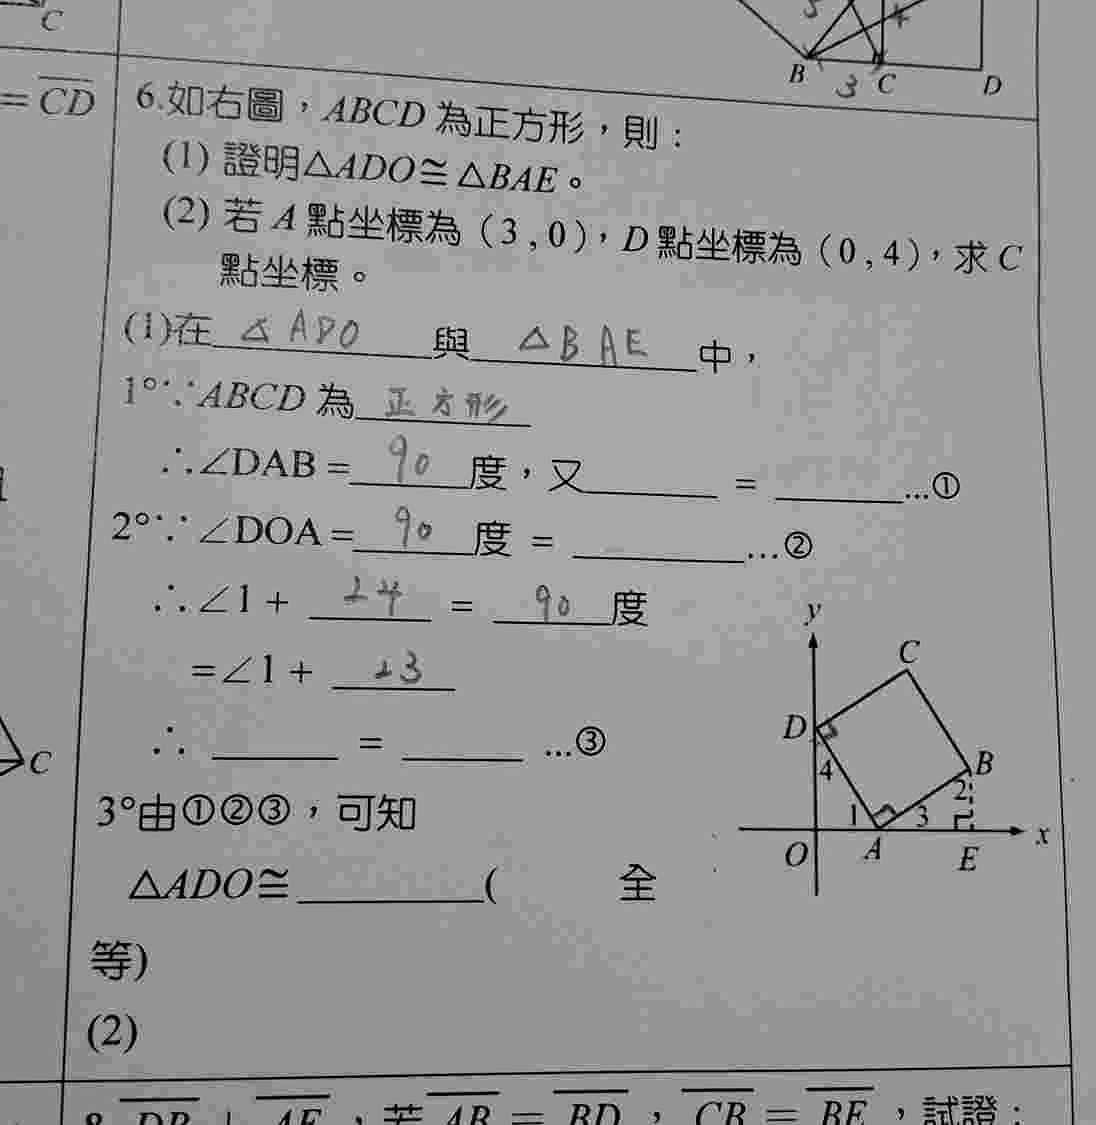 C
B 3 C D
= CD
6.如右圖，ABCD 為正方形，則：
(1) 證明△ADO≅△BAE。
(2) 若 A 點坐標為（3 , 0），D 點坐標為（0 , 4），求 C
點坐標。
(1)在 △ADO 與 △BAE 中，
1°∵ABCD 為 正方形
∴∠DAB = 90 度，又______ = ______...①
2°∵ ∠DOA = 90 度 = ______...②
∴∠1 + ∠4 = 90 度
=∠1 + ∠3
∴ ______ = ______ ...③
3°由①②③，可知
△ADO≅______( 全
等)
(2)
y
C
D
B
4
2
1
3
x
O
A
E
C
8. DB ⊥ AE，若 AB = BD，CB = BE，試證：